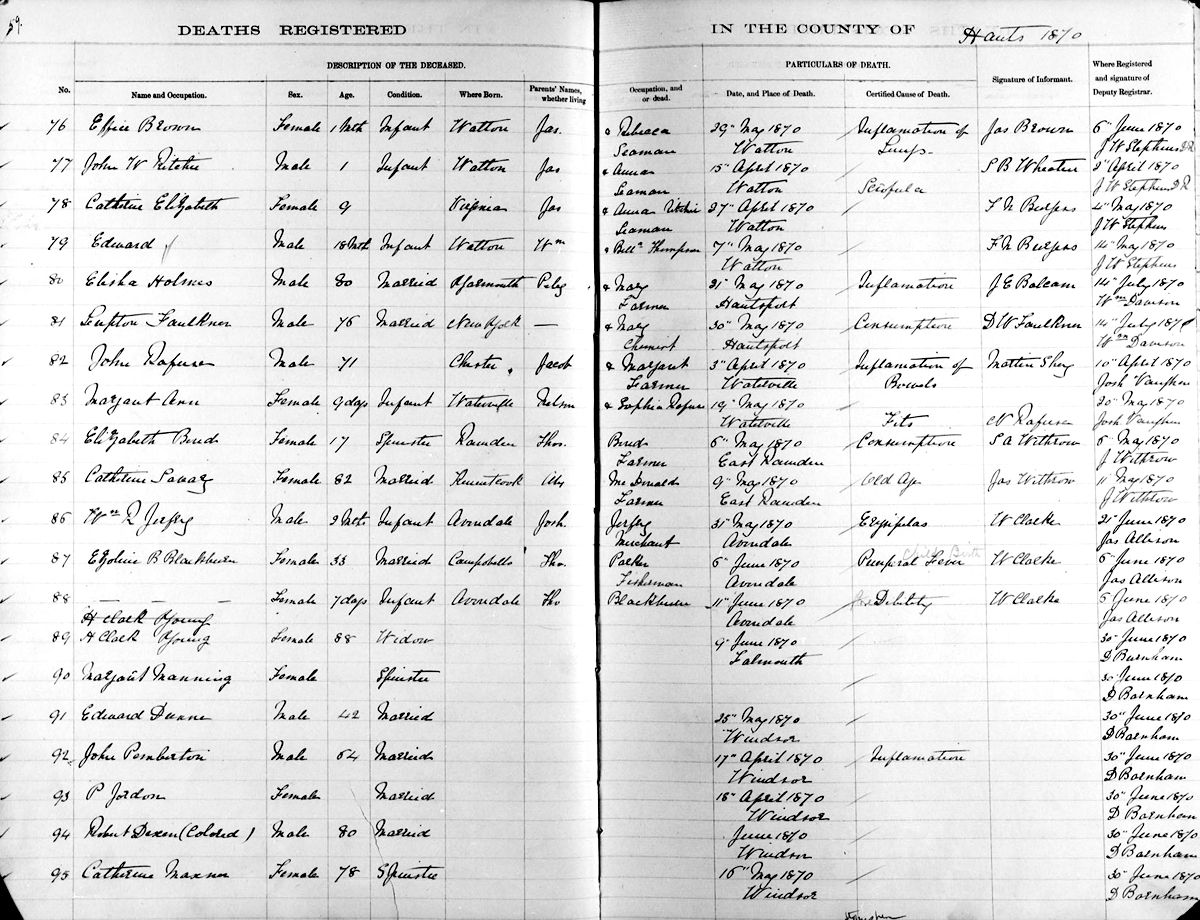 59.
DEATHS REGISTERED IN THE COUNTY OF Hants 1870
DESCRIPTION OF THE DECEASED. PARTICULARS OF DEATH.
No. Name and Occupation. Sex. Age. Condition. Where Born. Parents' Names, whether living Occupation, and or dead. Date, and Place of Death. Certified Cause of Death. Signature of Informant. Where Registered and signature of Deputy Registrar.
76 Effice Brown Female 1 Mth Infant Watton Jas. & Rebecca 29" May 1870 Inflamation of Jas Brown 6" June 1870
Seaman Watton Lungs J W Stephens D R
77 John W Ritchie Male 1 Infant Watton Jas & Anna 15" April 1870 S B Wheaten 2" April 1870
Seaman Watton Scrofula J W Stephens D R
78 Catherine Elizabeth Female 9 Virginia Jas & Anna Ritchie 27" April 1870 F N Burgess 4" May 1870
Seaman Watton J W Stephens
79 Edward Male 18 Mth Infant Watton Wm & Thompson 7" May 1870 F N Burgess 14" May 1870
Watton J W Stephens
80 Elisha Holmes Male 80 Married Yarmouth Peleg & Mary 21" May 1870 Inflamation J E Balcam 14" July 1870
Farmer Hantsport Wm Dawson
81 Faulkner Male 76 Married New York — & Mary 30" May 1870 Consumption D W Faulkner 14" July 1870
Hantsport Wm Dawson
82 John Rafuse Male 71 Chester Jacob & Margaret 3" April 1870 Inflamation of 10" April 1870
Farmer Waterville Bowels Josh Vaughan
83 Margaret Ann Female 9 days Infant Waterville Nelson & Sophia Rafuse 19" May 1870 20" May 1870
Waterville Fits N Rafuse Josh Vaughan
84 Elizabeth Bond Female 17 Spinster Rawden Thos. Bond 6" May 1870 Consumption S A Withrow 6" May 1870
Farmer East Rawden J Withrow
85 Catherine Savary Female 82 Married Kennetcook Alex McDonald 9" May 1870 Old Age Jas Withrow 11" May 1870
Farmer East Rawden J Withrow
86 Wm Male 2 Mths Infant Avondale Josh. 31" May 1870 Erysipelas W Clarke 21" June 1870
Merchant Avondale Jas Allison
87 B Blackburn Female 33 Married Campobello Tho. Parker 6" June 1870 Puerperal Fever Child Birth W Clarke 6" June 1870
Fisherman Avondale Jas Allison
88 — — Female 7 days Infant Avondale Tho Blackburn 11" June 1870 Debility W Clarke 5 June 1870
H Clark Young Avondale Jas Allison
89 H Clark Young Female 88 Widow 9" June 1870 30" June 1870
Falmouth D Barnham
90 Margaret Manning Female Spinster 30" June 1870
D Barnham
91 Edward Dunne Male 42 Married 25" May 1870 30" June 1870
Windsor D Barnham
92 John Pemberton Male 54 Married 17" April 1870 Inflamation 30" June 1870
Windsor D Barnham
93 P Jordon Female Married 18" April 1870 30" June 1870
Windsor D Barnham
94 Robert Dixen (Colored) Male 80 Married June 1870 30" June 1870
Windsor D Barnham
95 Catherine Maxner Female 78 Spinster 16" May 1870 30" June 1870
Windsor D Barnham